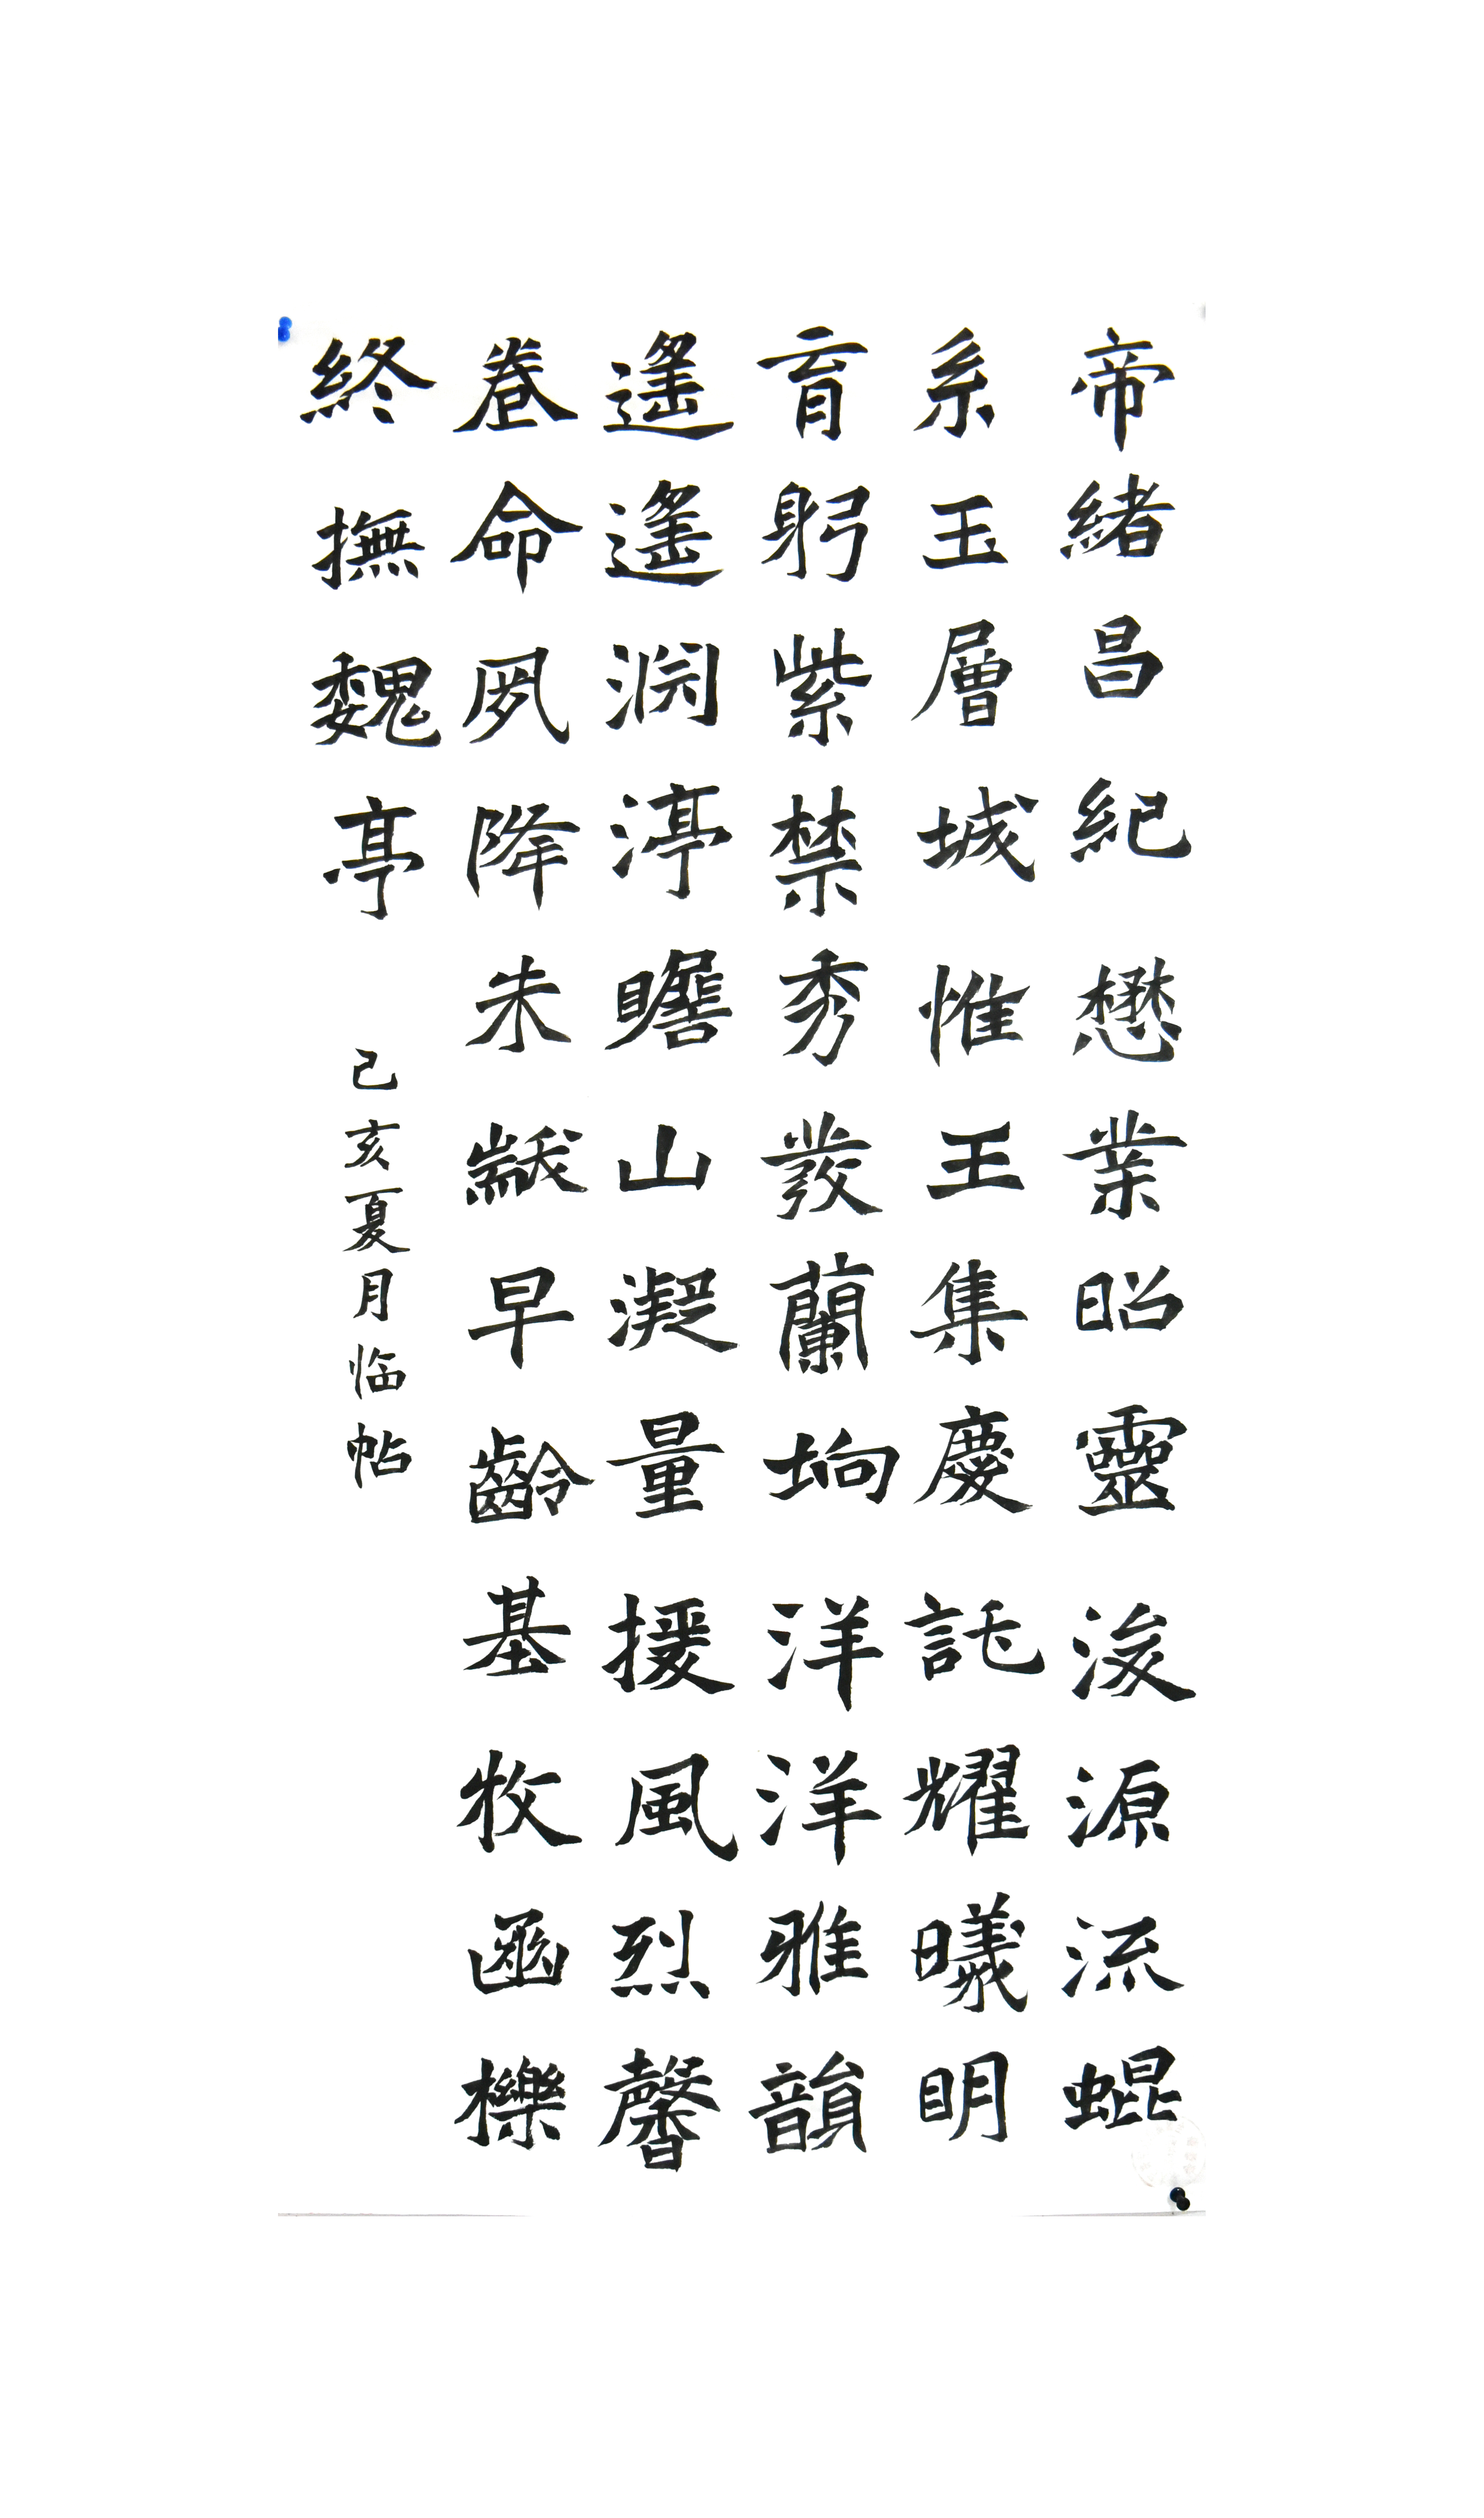 帝緒昌紀懋業昭靈浚源流蜫
系玉層城惟王集慶託耀曦明
育躬紫禁秀發蘭坰洋洋雅韻
遙遙淵渟瞻山凝量援風烈馨
卷命夙降未黻早齡基牧函櫟
終撫魏亭
己亥夏月临帖